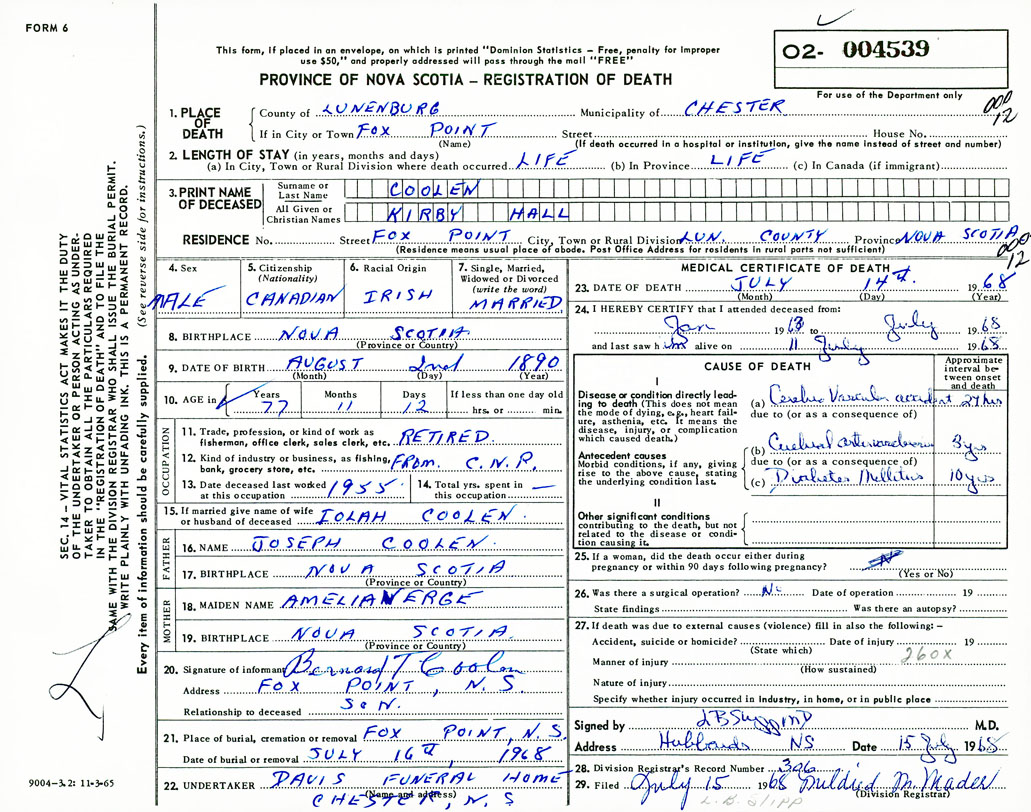 FORM 6
This form, if placed in an envelope, on which is printed "Dominion Statistics – Free, penalty for improper
use $50," and properly addressed will pass through the mail "FREE"
02- 004539
PROVINCE OF NOVA SCOTIA – REGISTRATION OF DEATH
For use of the Department only
000
12
1. PLACE OF DEATH
County of LUNENBURG Municipality of CHESTER
If in City or Town FOX POINT Street House No.
(Name) (If death occurred in a hospital or institution, give the name instead of street and number)
2. LENGTH OF STAY (in years, months and days)
(a) In City, Town or Rural Division where death occurred LIFE (b) In Province LIFE (c) In Canada (if immigrant)
3. PRINT NAME OF DECEASED
Surname or Last Name COOLEN
All Given or Christian Names KIRBY HALL
RESIDENCE No. Street FOX POINT City, Town or Rural Division LUN. COUNTY Province NOVA SCOTIA
(Residence means usual place of abode. Post Office Address for residents in rural parts not sufficient)
000
12
4. Sex MALE
5. Citizenship (Nationality) CANADIAN
6. Racial Origin IRISH
7. Single, Married, Widowed or Divorced (write the word) MARRIED
8. BIRTHPLACE NOVA SCOTIA
(Province or Country)
9. DATE OF BIRTH AUGUST 2nd 1890
(Month) (Day) (Year)
10. AGE in Years 77 Months 11 Days 12 If less than one day old hrs. or min.
OCCUPATION
11. Trade, profession, or kind of work as fisherman, office clerk, sales clerk, etc. RETIRED.
12. Kind of industry or business, as fishing, bank, grocery store, etc. FROM. C.N.R.
13. Date deceased last worked at this occupation 1955
14. Total yrs. spent in this occupation —
15. If married give name of wife or husband of deceased IOLAH COOLEN.
FATHER
16. NAME JOSEPH COOLEN.
17. BIRTHPLACE NOVA SCOTIA
(Province or Country)
MOTHER
18. MAIDEN NAME AMELIA VERGE
19. BIRTHPLACE NOVA SCOTIA.
(Province or Country)
20. Signature of informant Bernard T Coolen
Address FOX POINT, N.S.
Relationship to deceased SON.
21. Place of burial, cremation or removal FOX POINT, N.S.
Date of burial or removal JULY 16th, 1968
22. UNDERTAKER DAVIS FUNERAL HOME
(Name and address)
CHESTER, N.S
MEDICAL CERTIFICATE OF DEATH
23. DATE OF DEATH JULY 14th. 1968
(Month) (Day) (Year)
24. I HEREBY CERTIFY that I attended deceased from:
Jan 1963 to July 1968
and last saw him alive on 11 July 1968
CAUSE OF DEATH
Approximate interval between onset and death
I
Disease or condition directly leading to death (This does not mean the mode of dying, e.g., heart failure, asthenia, etc. It means the disease, injury, or complication which caused death.)
(a) Cerebro Vascular accident 24 hrs
due to (or as a consequence of)
Antecedent causes
Morbid conditions, if any, giving rise to the above cause, stating the underlying condition last.
(b) Cerebral arteriosclerosis 3 yrs
due to (or as a consequence of)
(c) Diabetes Mellitus 10 yrs
II
Other significant conditions contributing to the death, but not related to the disease or condition causing it.
25. If a woman, did the death occur either during pregnancy or within 90 days following pregnancy?
(Yes or No)
26. Was there a surgical operation? No Date of operation 19
State findings Was there an autopsy?
27. If death was due to external causes (violence) fill in also the following: –
Accident, suicide or homicide? Date of injury 19
(State which)
260X
Manner of injury
(How sustained)
Nature of injury
Specify whether injury occurred in industry, in home, or in public place
Signed by M.D.
Address Hubbards NS Date 15 July 1968
28. Division Registrar's Record Number 326
29. Filed July 15 1968 Mildred M. Mader
(Division Registrar)
SEC. 14 – VITAL STATISTICS ACT MAKES IT THE DUTY
OF THE UNDERTAKER OR PERSON ACTING AS UNDER-
TAKER TO OBTAIN ALL THE PARTICULARS REQUIRED
IN THE "REGISTRATION OF DEATH" AND TO FILE THE
SAME WITH THE DIVISION REGISTRAR WHO SHALL ISSUE THE BURIAL PERMIT.
WRITE PLAINLY WITH UNFADING INK. THIS IS A PERMANENT RECORD.
Every item of information should be carefully supplied. (See reverse side for instructions.)
9004-3.2: 11-3-65